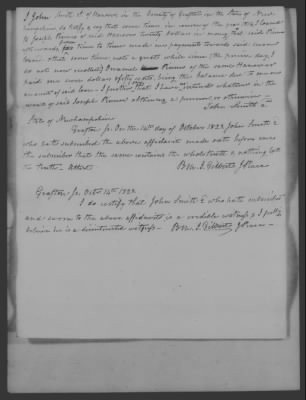 I John Smith 2d of Hanover in the County of Grafton in the State of New
hampshire do testify & say that some time in summer of the year 1821, I loaned
to Joseph Pinneo of said Hanover twenty dollars in money that said Pinneo
afterwards from time to time made me payments towards said money
loan & that some time not a great while since (the precise day, I
do not now recollect)                Pinneo of the same Hanover
paid me some dollars fifty cents, being the balance due to me on
amount of said loan. I further say that I have no interest whatever in the
event of said Joseph Pinneo obtaining a pension or otherwise
John Smith 2d
State of Newhampshire
Grafton ss. On the 14th day of October 1823, John Smith 2
who hath subscribed the above affidavit made oath before me
the subscriber that the same contains the whole truth & nothing but
the truth. Attest        Bn. J. Gilbert J Peace
Grafton ss. Octr. 14th 1823
I do certify that John Smith 2 who hath subscribed
and sworn to the above affidavit is a credible witness & I further
believe he is a disinterested witness - Bn. J. Gilbert J Peace